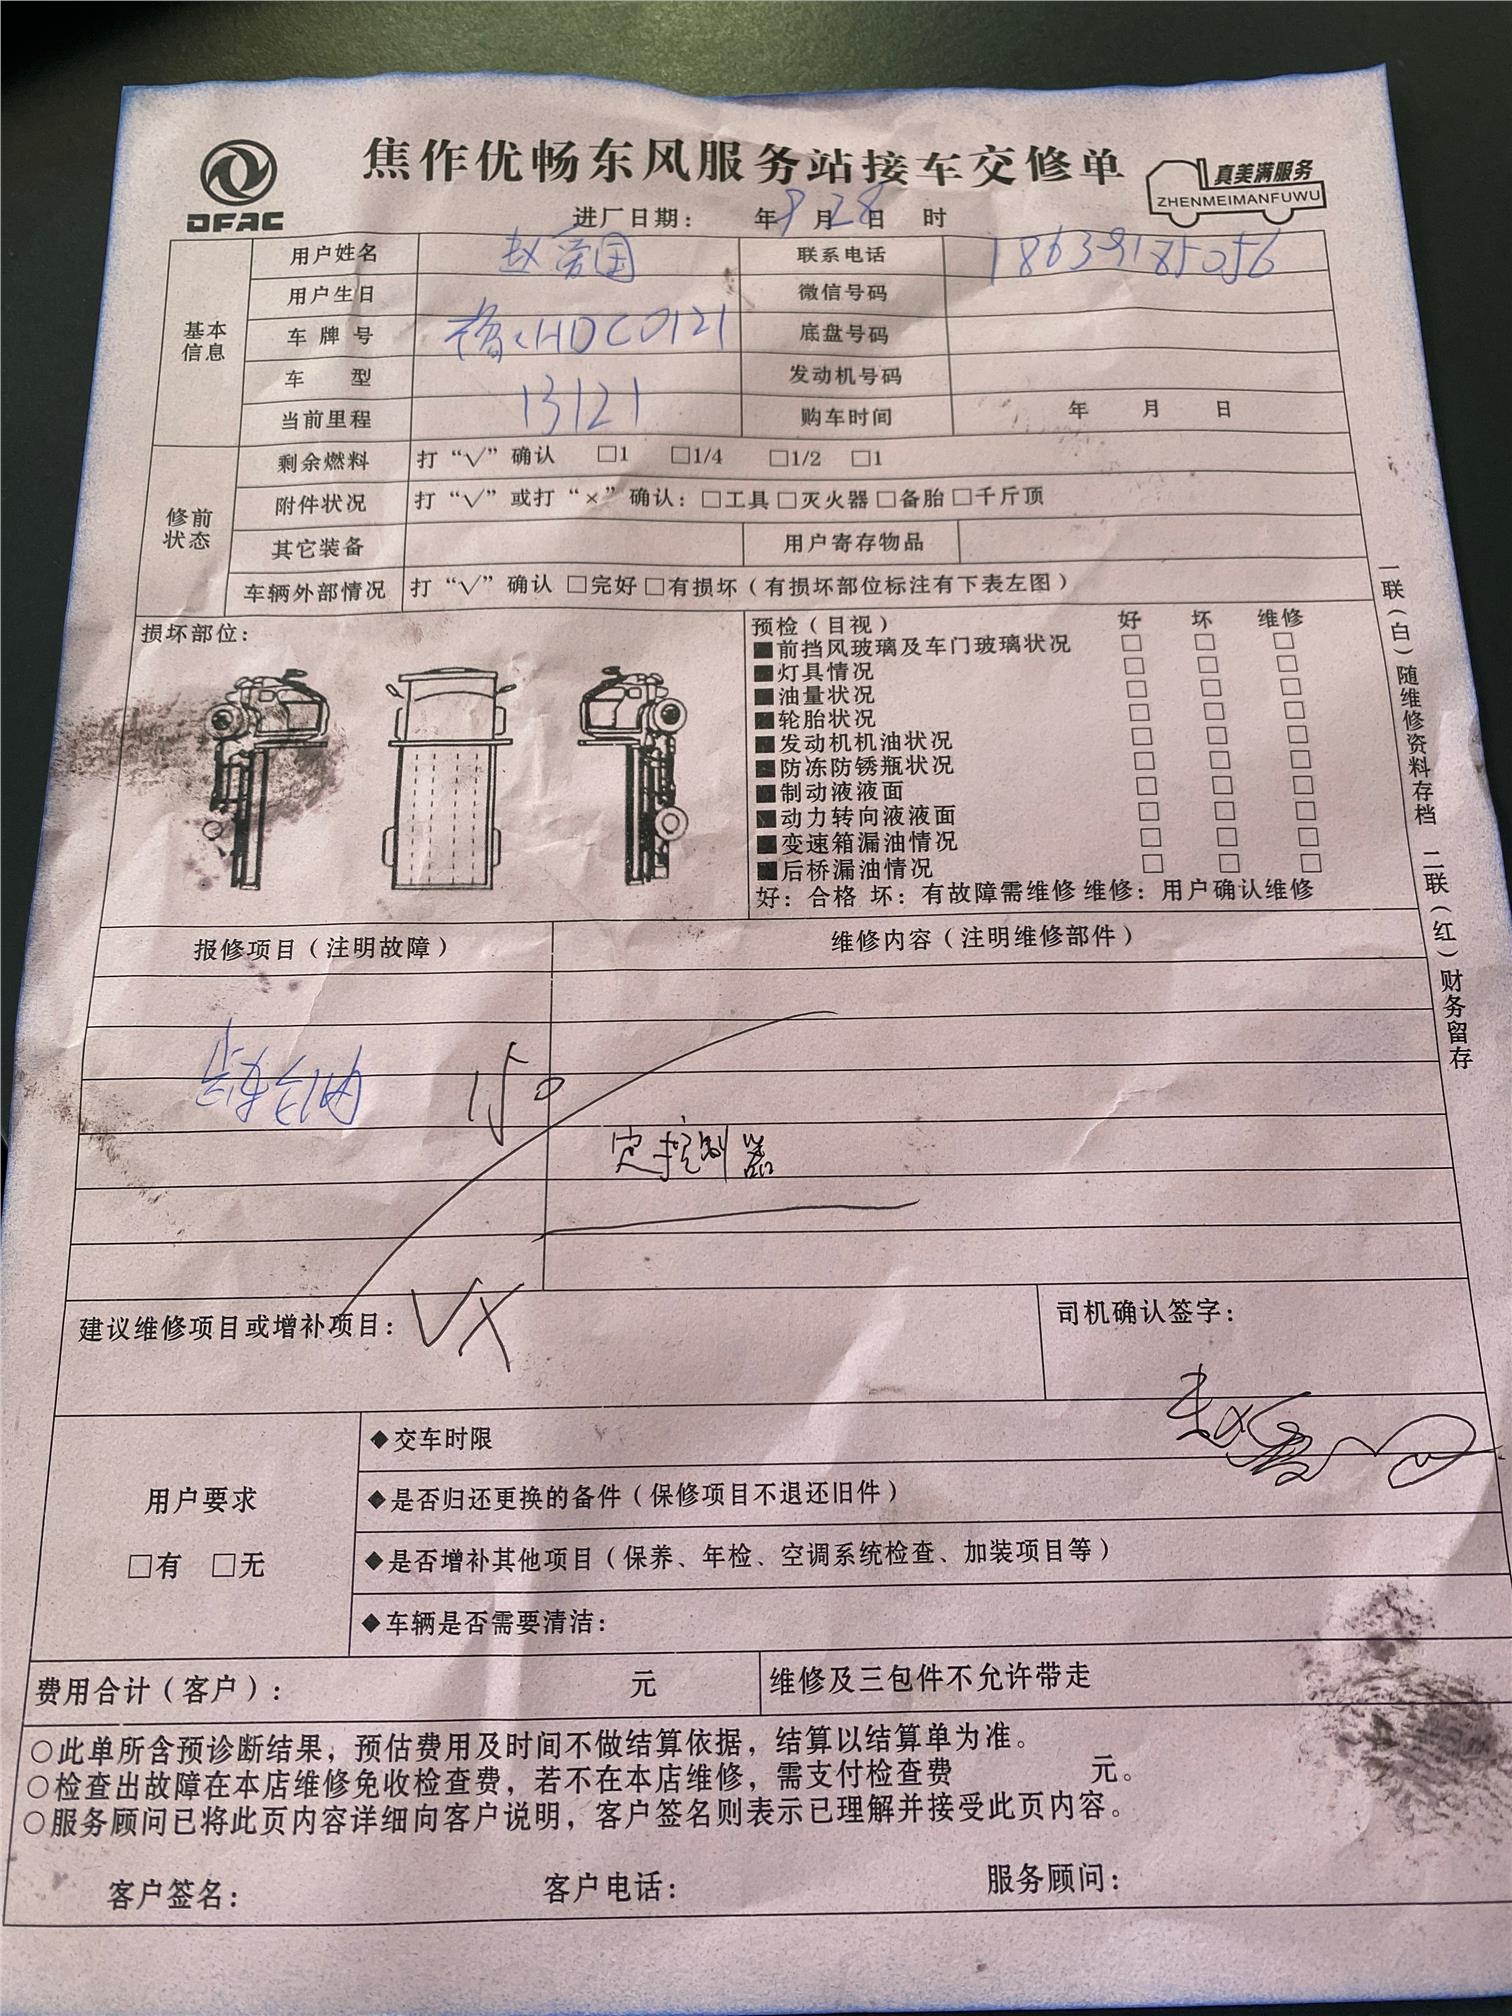 DFAC
焦作优畅东风服务站接车交修单
真美满服务
ZHENMEIMANFUWU
进厂日期： 年9月28日 时
基本信息
用户姓名 赵爱国 联系电话 18639185056
用户生日 微信号码
车牌号 豫HDC0121 底盘号码
车型 发动机号码
当前里程 13121 购车时间 年 月 日
修前状态
剩余燃料 打“√”确认 □1 □1/4 □1/2 □1
附件状况 打“√”或打“×”确认：□工具□灭火器□备胎□千斤顶
其它装备 用户寄存物品
车辆外部情况 打“√”确认 □完好□有损坏（有损坏部位标注有下表左图）
损坏部位：
预检（目视） 好 坏 维修
■前挡风玻璃及车门玻璃状况 □ □ □
■灯具情况 □ □ □
■油量状况 □ □ □
■轮胎状况 □ □ □
■发动机机油状况 □ □ □
■防冻防锈瓶状况 □ □ □
■制动液液面 □ □ □
■动力转向液液面 □ □ □
■变速箱漏油情况 □ □ □
■后桥漏油情况 □ □ □
好：合格 坏：有故障需维修 维修：用户确认维修
一联（白）随维修资料存档 二联（红）财务留存
报修项目（注明故障） 维修内容（注明维修部件）
定控制器
建议维修项目或增补项目： VX
司机确认签字：
赵爱国
用户要求
□有 □无
◆交车时限
◆是否归还更换的备件（保修项目不退还旧件）
◆是否增补其他项目（保养、年检、空调系统检查、加装项目等）
◆车辆是否需要清洁：
费用合计（客户）： 元 维修及三包件不允许带走
○此单所含预诊断结果，预估费用及时间不做结算依据，结算以结算单为准。
○检查出故障在本店维修免收检查费，若不在本店维修，需支付检查费 元。
○服务顾问已将此页内容详细向客户说明，客户签名则表示已理解并接受此页内容。
客户签名： 客户电话： 服务顾问：